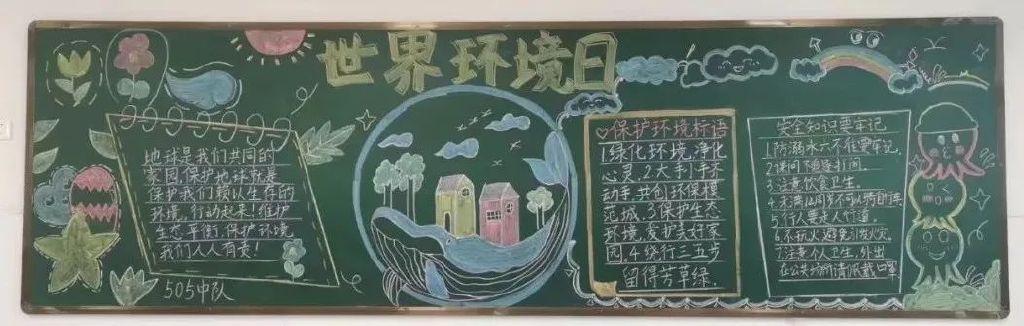 世界环境日
地球是我们共同的
家园,保护地球就是
保护我们赖以生存的
环境,行动起来!维护
生态平衡,保护环境,
我们人人有责!
505中队
保护环境标语
1.绿化环境,净化
心灵.2.大手小手齐
动手,共创环保模
范城.3.保护生态
环境,爱护美好家
园.4.绕行三五步
留得芳草绿.
安全知识要牢记
1.防溺水六不能要牢记.
2.课间不追逐打闹.
3.注意饮食卫生.
4.未满12周岁不可以骑自行车
5.行人要走人行道.
6.不玩火,避免引发火灾.
7.注意个人卫生,外出
在公共场所请佩戴口罩